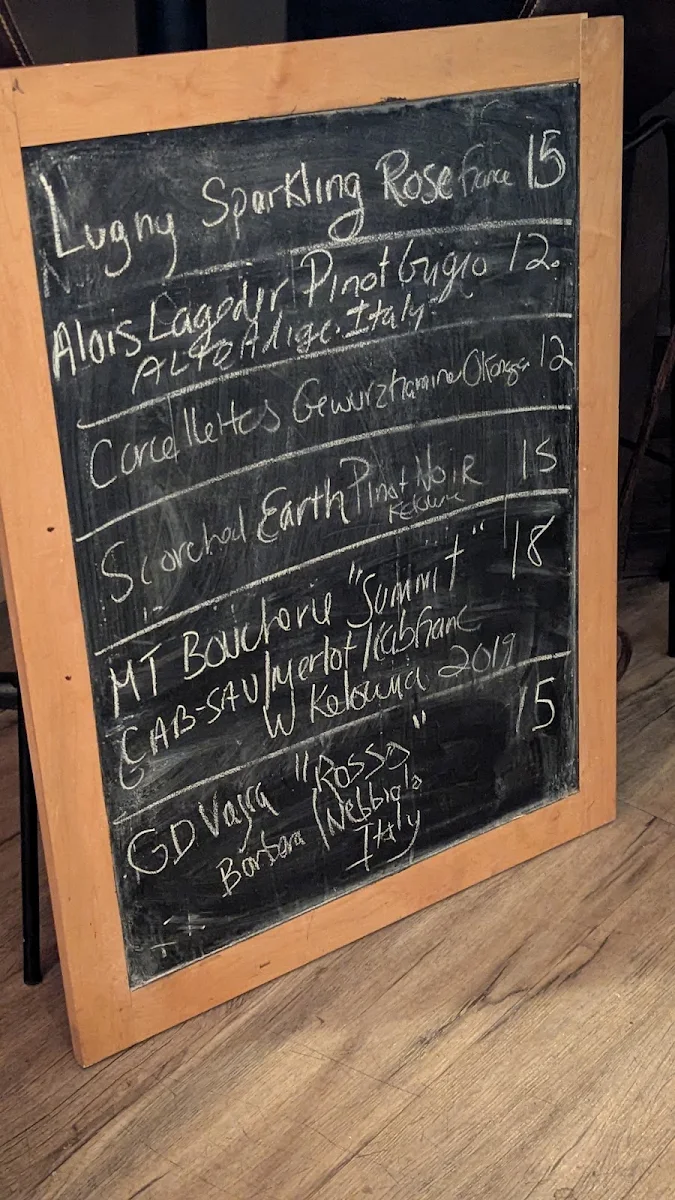 Lugny Sparkling Rose France 15
Alois Lageder Pinot Gugio 12.
ALTO Adige. Italy
Corcellettes Gewurztramine Okanagan 12
Scorched Earth Pinot NoiR 15
Kelowna
MT Boucherie "Summit" 18
CAB-SAV/Merlot/Cabfranc
W Kelowna 2019
GD Vajra "Rosso" 15
Barbera/Nebbiolo
Italy